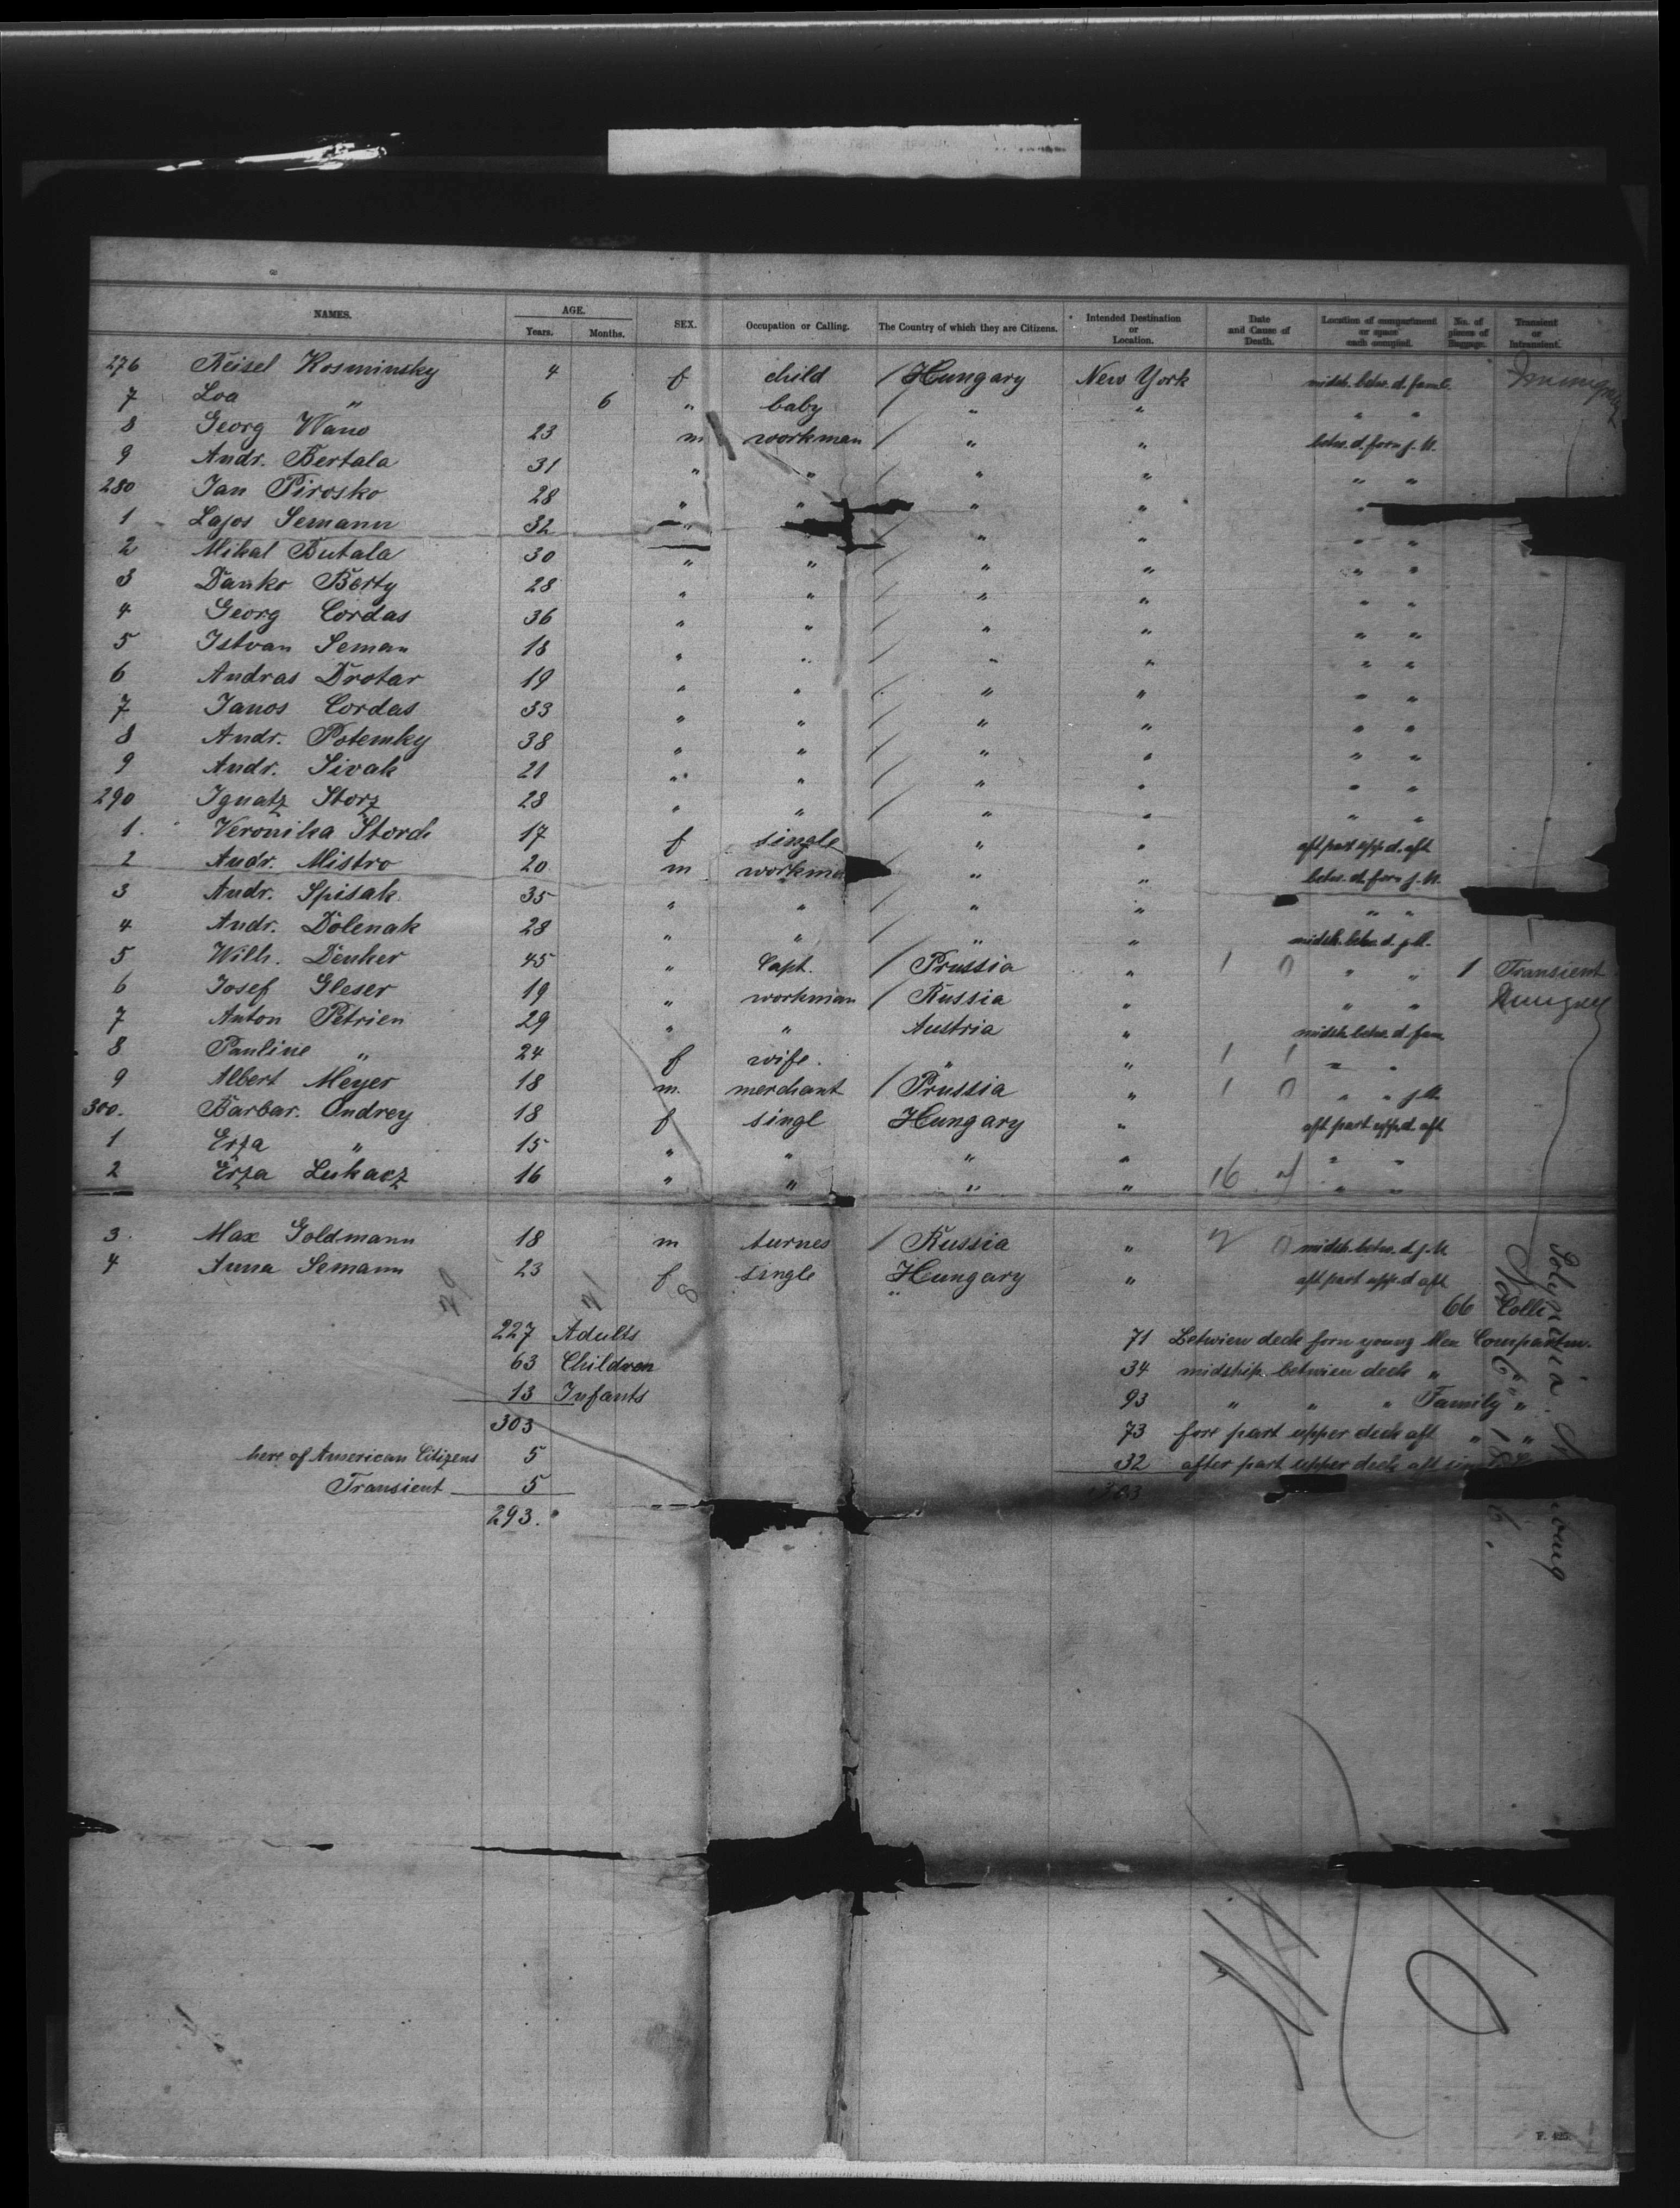 NAMES. AGE. Years. Months. SEX. Occupation or Calling. The Country of which they are Citizens. Intended Destination or Location. Date and Cause of Death. Location of compartment or space each occupied. No. of pieces of Baggage. Transient or Intransient.
276 Reisel Kosminsky 4 f child / Hungary New York midsh. betw. d. faml.
7 Loa " 6 " baby / " " " "
8 Georg Wano 23 m workman / " " betw. d. forn j. M.
9 Andr. Bertala 31 " " " " " "
280 Jan Pirosko 28 " " / " "
1 Lajos Semann 32 " / " " " "
2 Mikal Butala 30 " " / " " " "
3 Danko Berty 28 " " / " " " "
4 Georg Cordas 36 " " / " " " "
5 Istvan Seman 18 " " / " " " "
6 Andras Drotar 19 " " / " " " "
7 Janos Cordas 33 " " / " " " "
8 Andr. Potemky 38 " " / " " " "
9 Andr. Sivak 21 " " / " " " "
290 Ignatz Storz 28 " " / " " " "
1. Veronika Storch 17 f single " " aft part upp. d. aft
2 Andr. Mistro 20 m workma " " betw. d. forn j. M.
3 Andr. Spisak 35 " " / " " " "
4 Andr. Dolenak 28 " " / " " midsh. betw. d. j. M.
5 Wilh. Denker 45 " Capt. / Prussia " 1 0 " " 1 Transient
6 Josef Gleser 19 " workman / Russia " " "
7 Anton Petrien 29 " " Austria " midsh. betw. d. fam.
8 Pauline " 24 f wife. " " 1 1 " "
9 Albert Meyer 18 m. merchant / Prussia " 1 0 " " j. M.
300. Barbar. Ondrey 18 f singl Hungary " aft part upp. d. aft
1 Erza " 15 " " " " " "
2 Erza Lukacz 16 " " " " 16 " "
3. Max Goldmann 18 m turnes / Russia " 0 midsh. betw. d. j. M
4 Anna Semann 23 f single Hungary " aft part upp. d aft
66 Colli
227 Adults 71 Betwien deck forn young Men Compartm.
63 Children 34 midship betwien deck "
13 Infants 93 " " " Family "
303 73 fore part upper deck aft " "
here of American Citizens 5 32 after part upper deck aft
Transient 5 303
293.
F. 425.